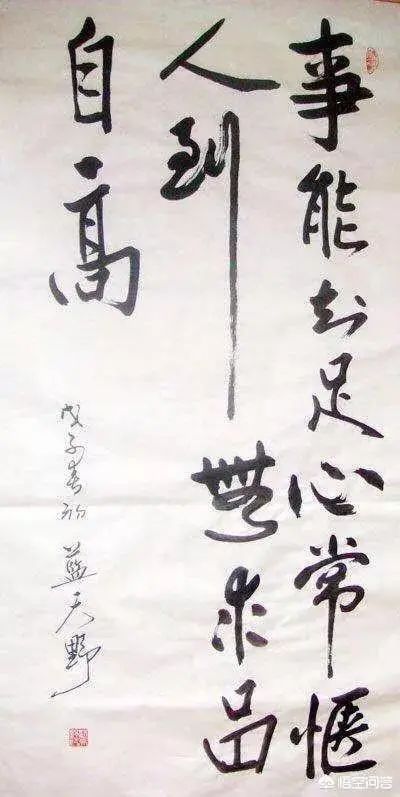 事能知足心常惬
人到無求品
自高
戊子春初 蓝天野
悟空问答